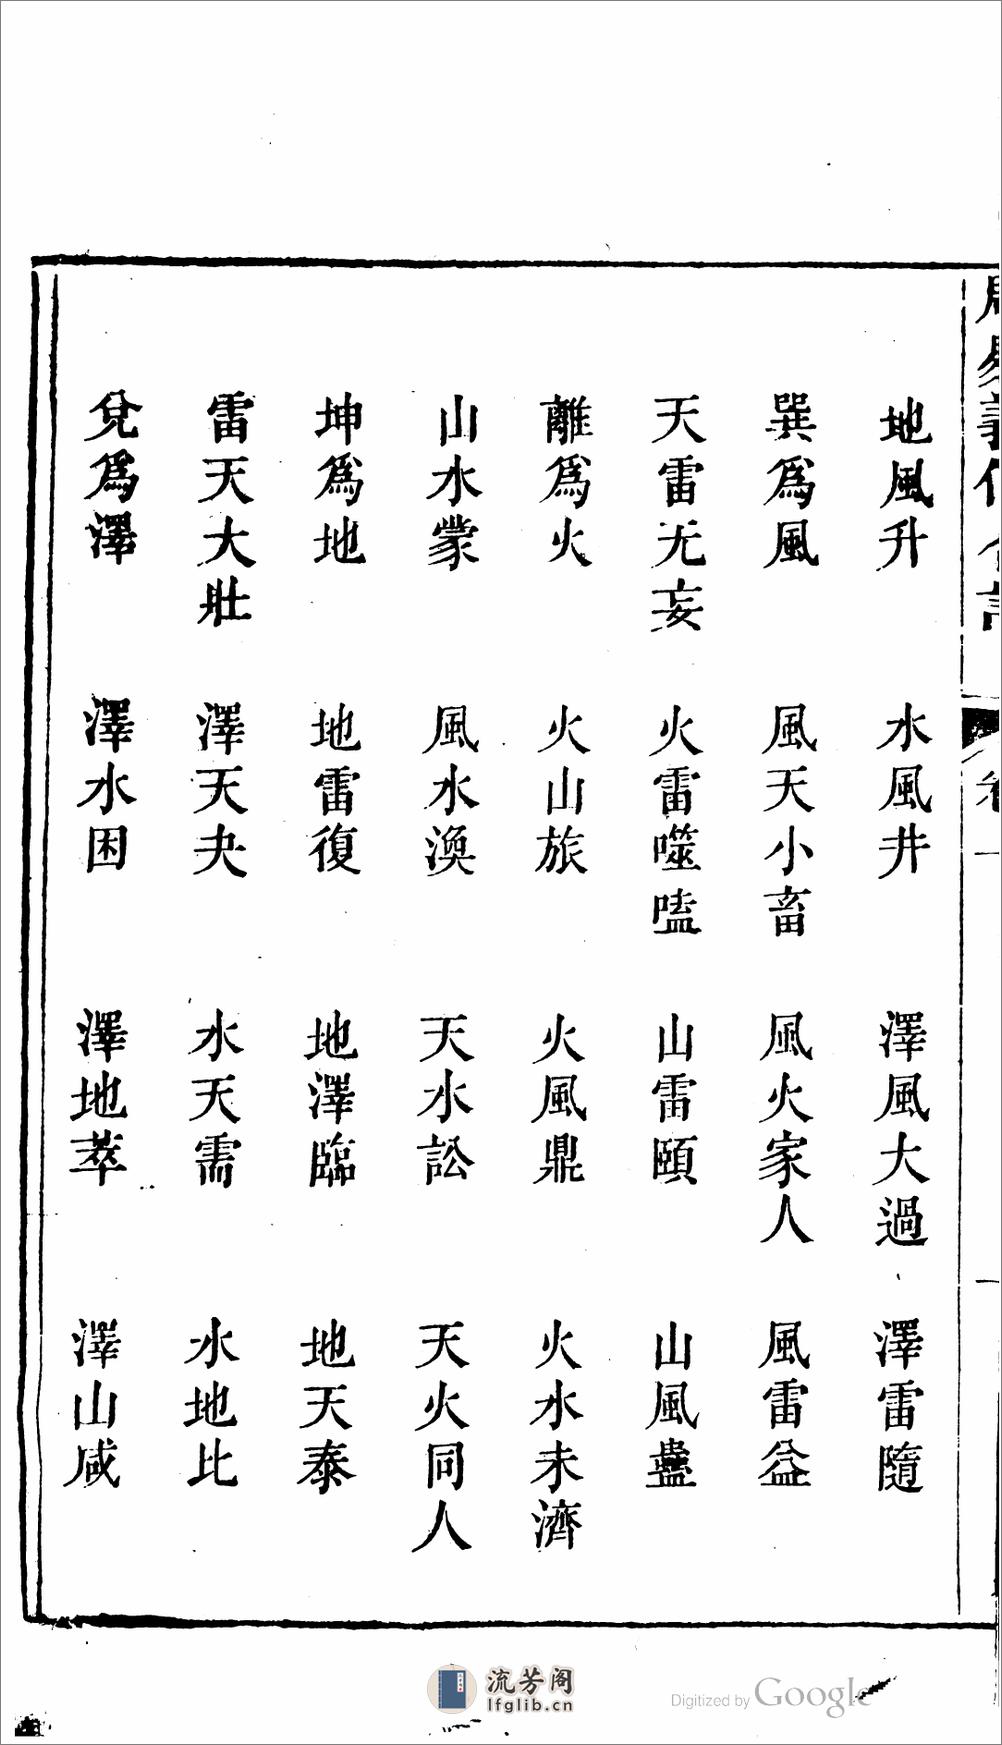 地風升　水風井　澤風大過　澤雷隨
巽爲風　風天小畜　風火家人　風雷益
天雷无妄　火雷噬嗑　山雷頤　山風蠱
離爲火　火山旅　火風鼎　火水未濟
山水蒙　風水渙　天水訟　天火同人
坤爲地　地雷復　地澤臨　地天泰
雷天大壯　澤天夬　水天需　水地比
兌爲澤　澤水困　澤地萃　澤山咸
流芳阁
lfglib.cn
Digitized by Google